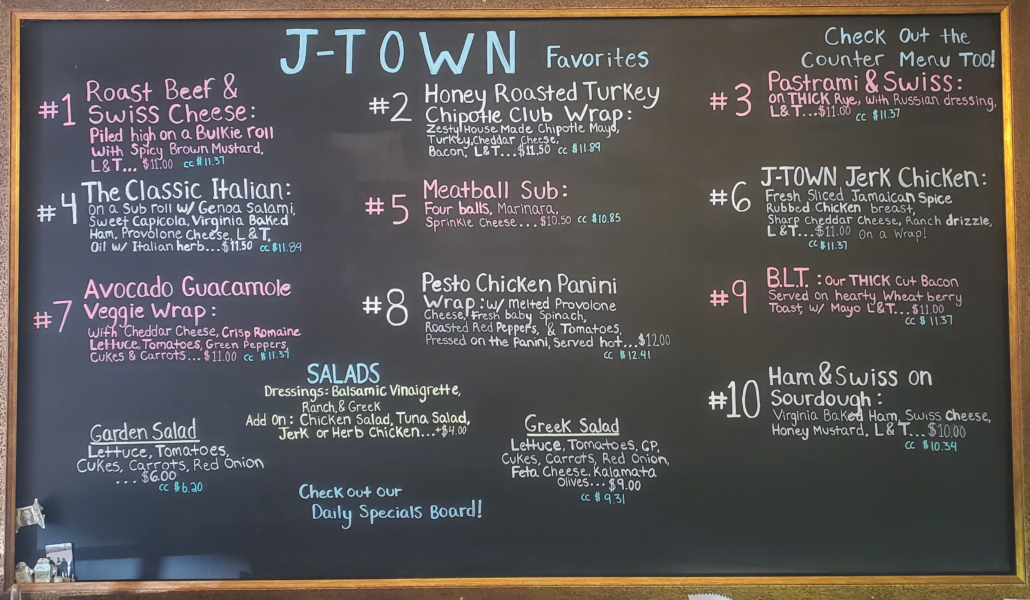 J-TOWN Favorites
Check Out the
Counter Menu TOO!
#1 Roast Beef &
Swiss Cheese:
Piled high on a Bulkie roll
With Spicy Brown Mustard,
L&T... $11.00 cc $11.37
#2 Honey Roasted Turkey
Chipotle Club Wrap:
Zesty House Made Chipotle Mayo,
Turkey, Cheddar Cheese,
Bacon, L&T...$11.50 cc $11.89
#3 Pastrami & Swiss:
on THICK Rye, with Russian dressing,
L&T...$11.00 cc $11.37
#4 The Classic Italian:
On a Sub roll w/ Genoa Salami,
Sweet Capicola, Virginia Baked
Ham, Provolone Cheese, L&T,
Oil w/ Italian herb...$11.50 cc $11.89
#5 Meatball Sub:
Four balls, Marinara,
Sprinkle Cheese...$10.50 cc $10.85
#6 J-TOWN Jerk Chicken:
Fresh Sliced Jamaican Spice
Rubbed Chicken breast,
Sharp Cheddar Cheese, Ranch drizzle,
L&T...$11.00 On a Wrap!
cc $11.37
#7 Avocado Guacamole
Veggie Wrap:
With Cheddar Cheese, Crisp Romaine
Lettuce, Tomatoes, Green Peppers,
Cukes & Carrots...$11.00 cc $11.37
#8 Pesto Chicken Panini
Wrap: w/ melted Provolone
Cheese, Fresh baby Spinach,
Roasted Red Peppers, & Tomatoes,
Pressed on the Panini, Served hot...$12.00
cc $12.41
#9 B.L.T.: Our THICK Cut Bacon
Served on hearty Wheat berry
Toast, w/ Mayo L&T...$11.00
cc $11.37
#10 Ham & Swiss on
Sourdough:
Virginia Baked Ham, Swiss Cheese,
Honey Mustard, L&T...$10.00
cc $10.34
SALADS
Dressings: Balsamic Vinaigrette,
Ranch, & Greek
Add On: Chicken Salad, Tuna Salad,
Jerk or Herb Chicken...+$4.00
Garden Salad
Lettuce, Tomatoes,
Cukes, Carrots, Red Onion
...$6.00
cc $6.20
Greek Salad
Lettuce, Tomatoes, GP,
Cukes, Carrots, Red Onion,
Feta Cheese, Kalamata
Olives...$9.00
cc $9.31
Check out our
Daily Specials Board!